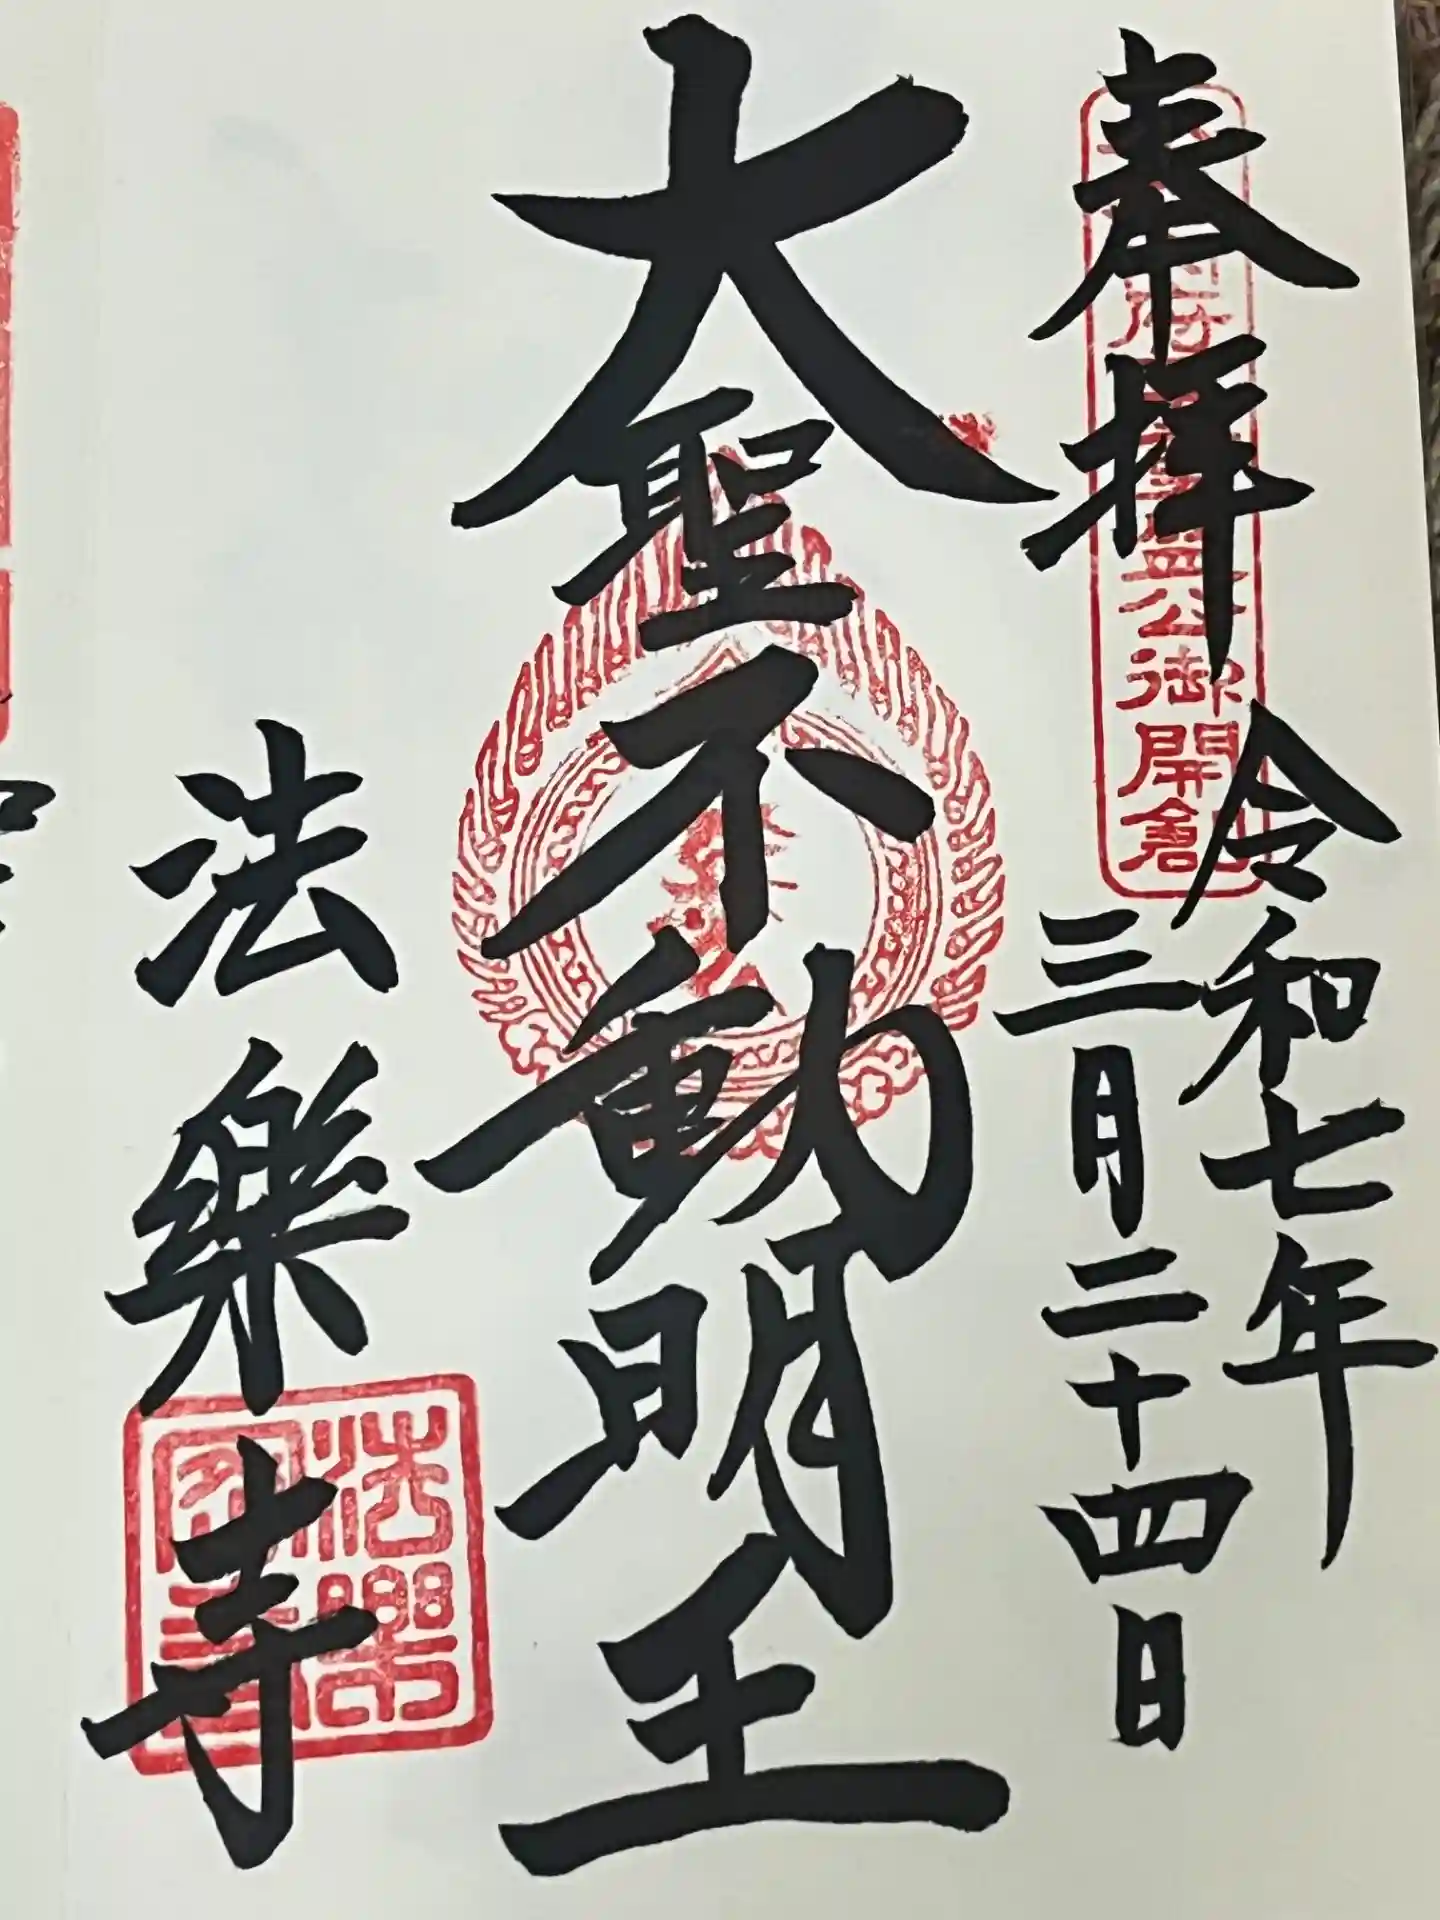 奉拝
公御開創
令和七年
三月二十四日
大聖不動明王
法樂寺